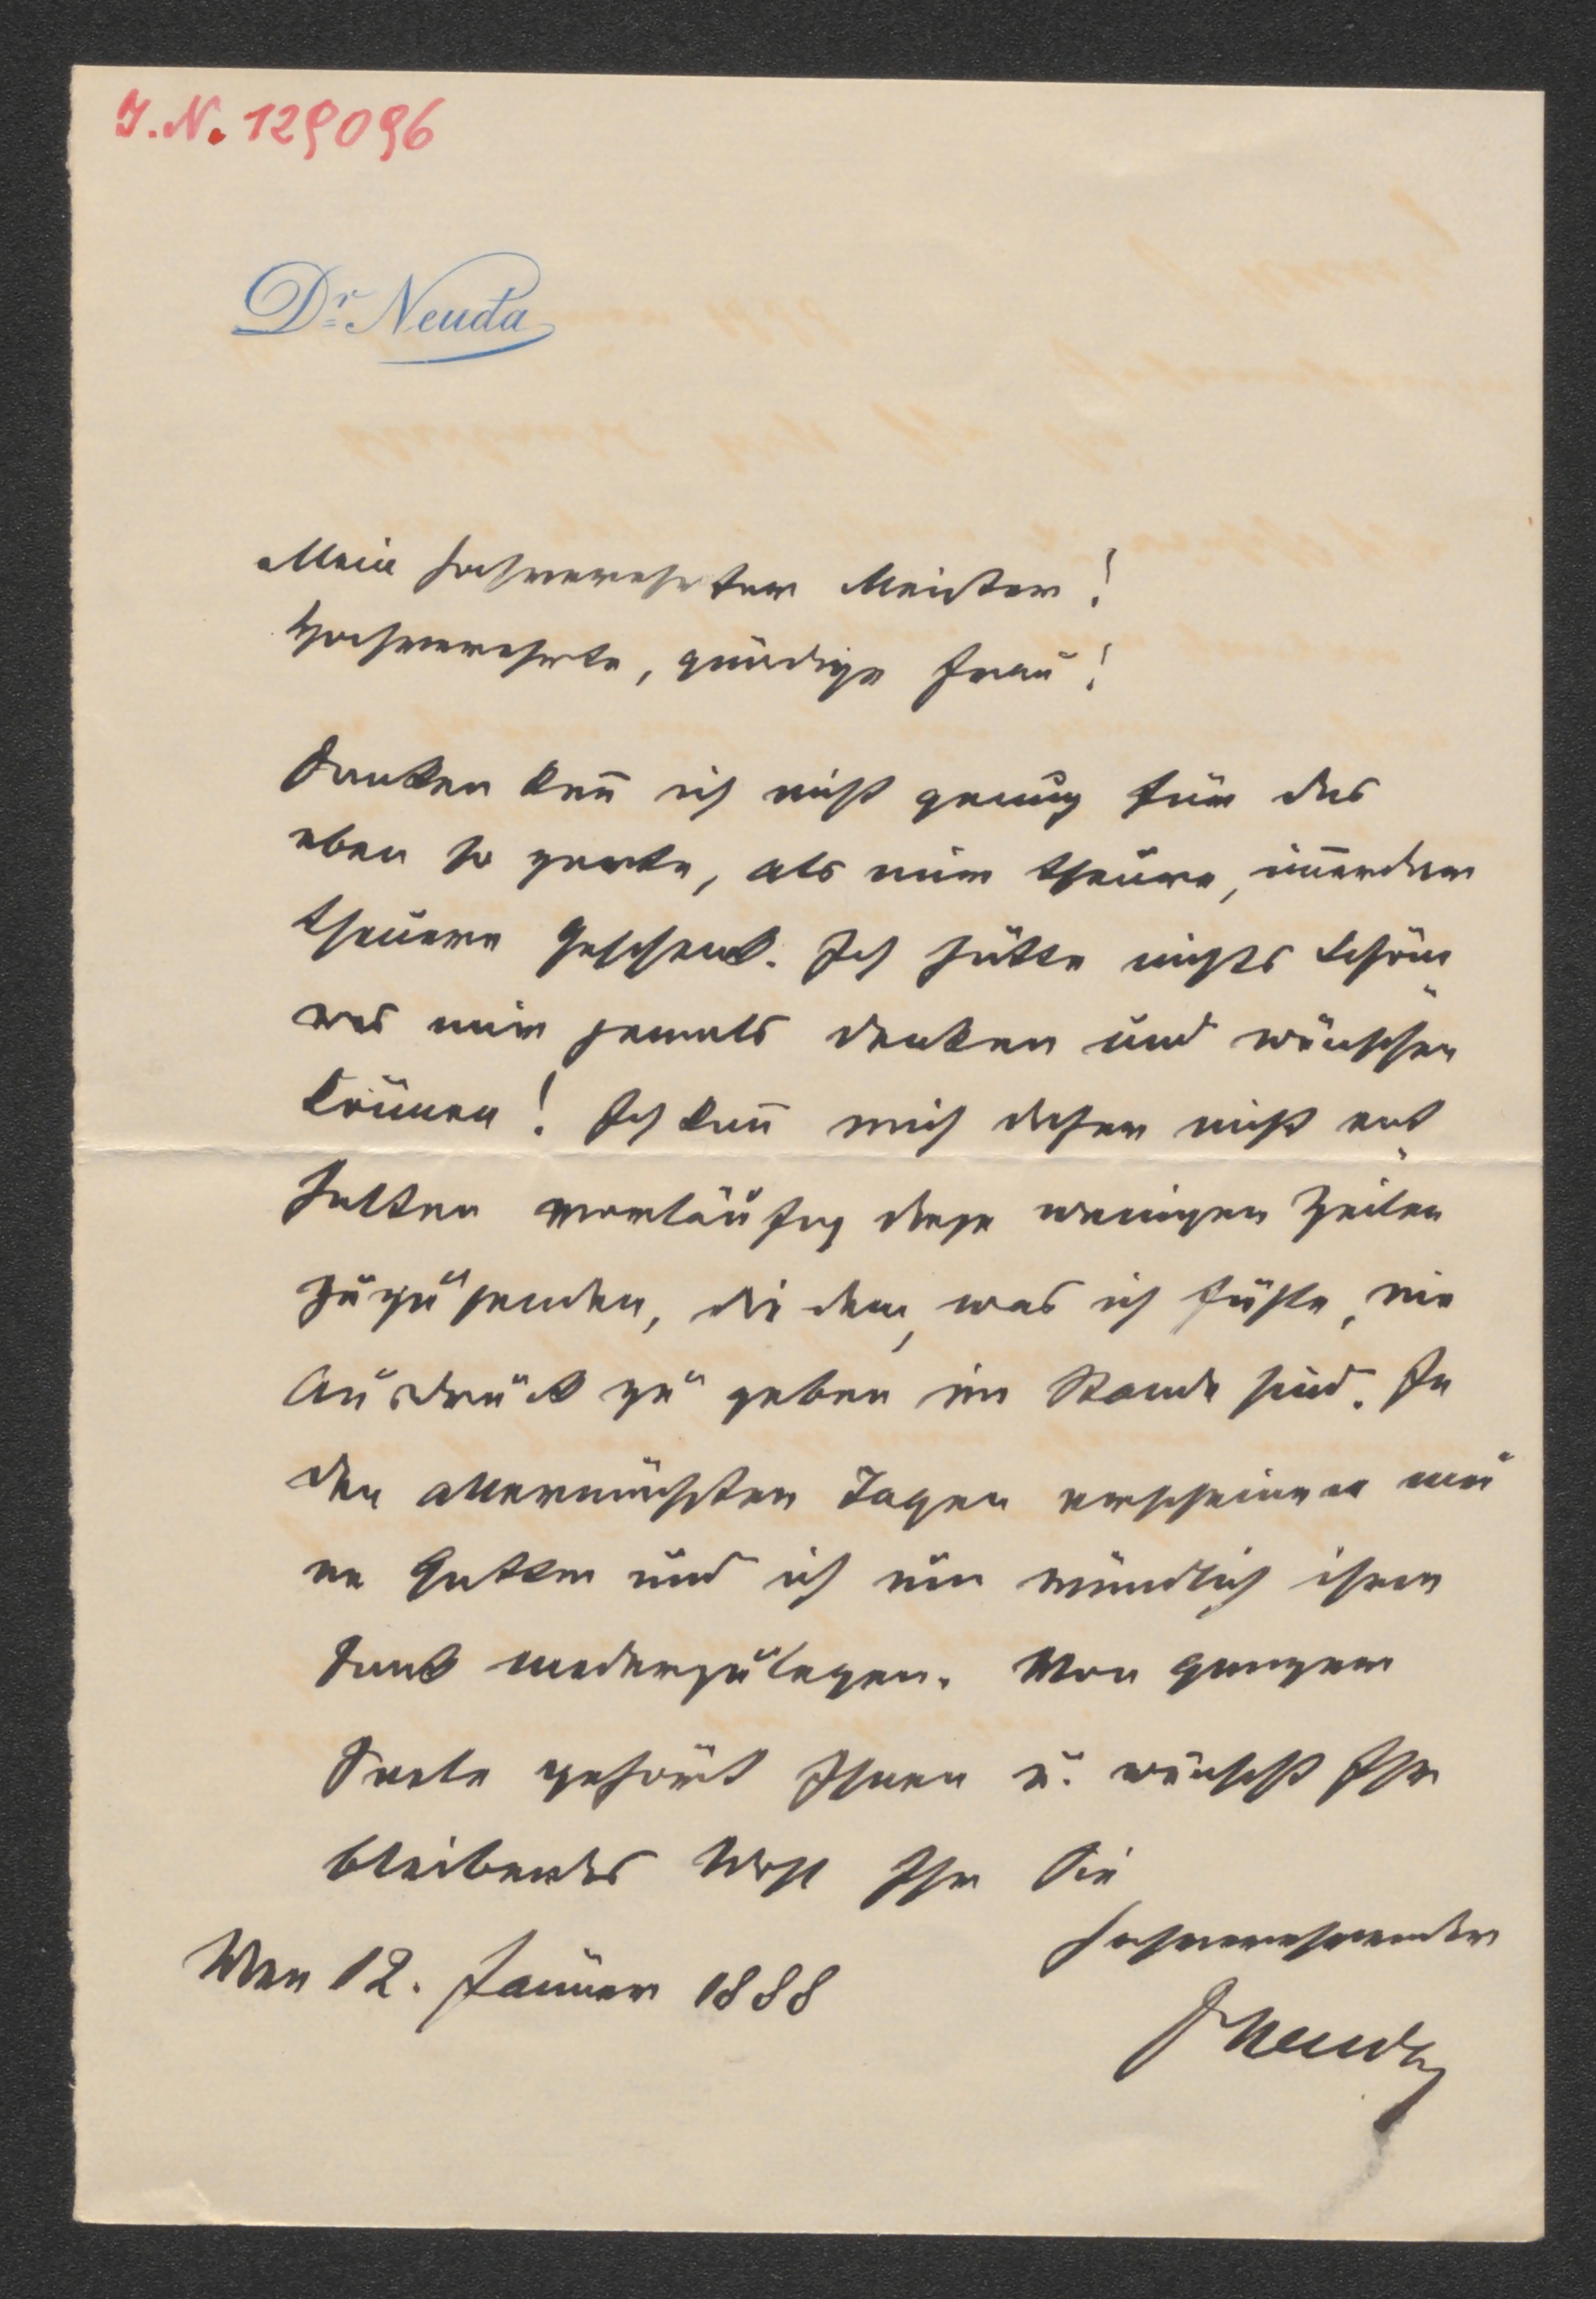 I.N. 129096
Dr Neuda
Mein hochverehrter Meister!
Hochverehrte, gnädige Frau!
Danken kann ich nicht genug für das
eben so zarte, als mir theure, immerdar
theuere Geschenk. Ich hätte nichts Schöne
res mir jemals denken und wünschen
können! Ich kann mich daher nicht ent
halten vorläufig diese wenigen Zeilen
zuzusenden, die dem, was ich fühle, nie
Ausdruck zu geben im Stande sind. In
den allernächsten Tagen erscheinen mei
ne Gattin und ich um mündlich ihren
Dank niederzulegen. Von ganzer
Seele gehört Ihnen u. wünscht Ihr
bleibendes Wohl Ihr Sie
hochverehrender
Wien 12. Januar 1888
Neuda